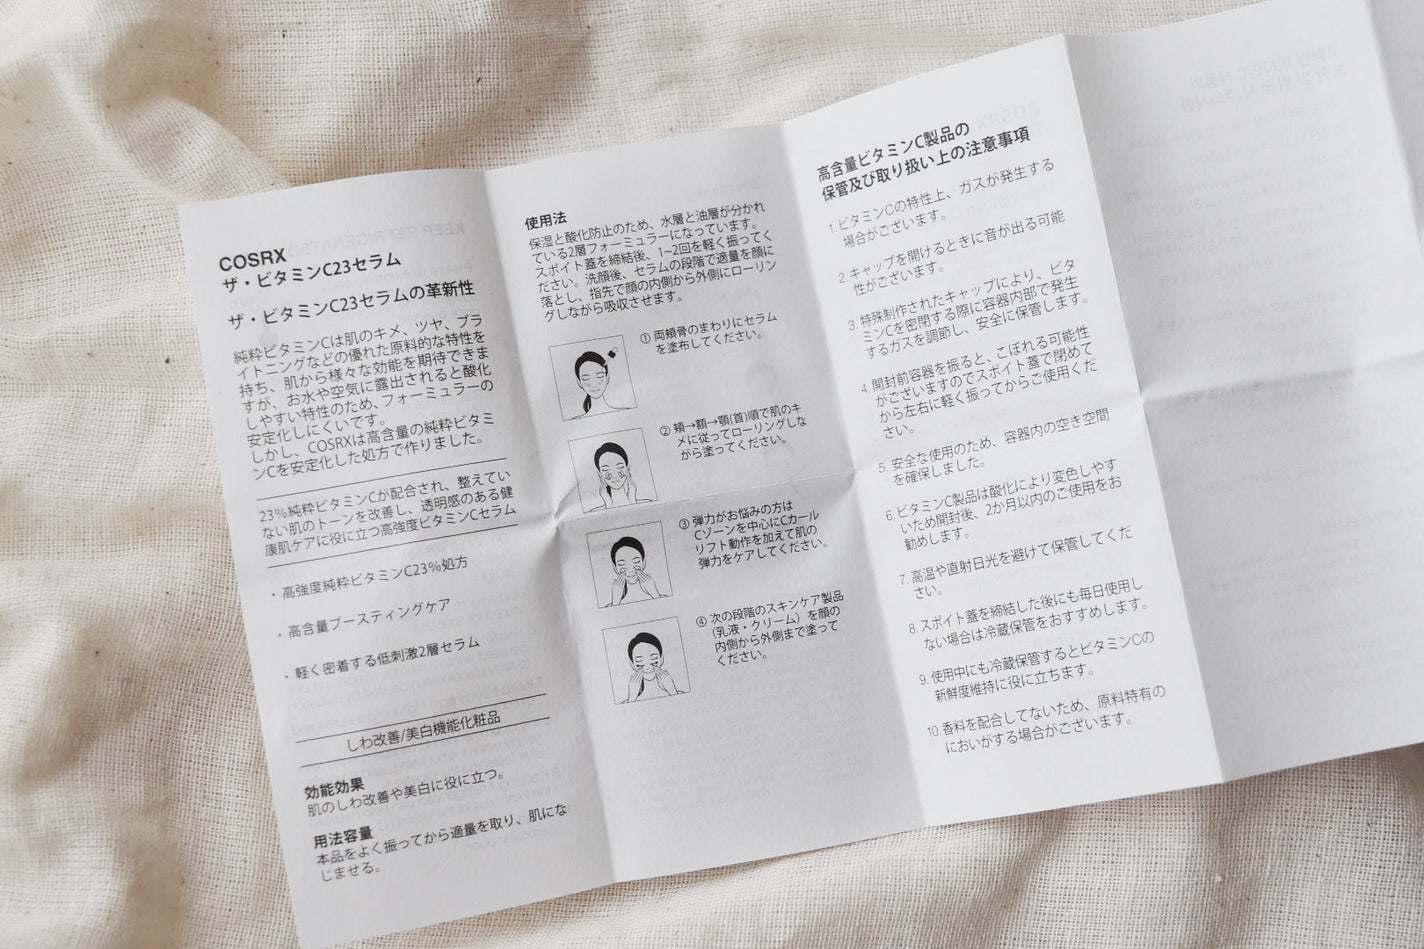 COSRX
ザ・ビタミンC23セラム
ザ・ビタミンC23セラムの革新性
純粋ビタミンCは肌のキメ、ツヤ、ブラ
イトニングなどの優れた原料的な特性を
持ち、肌から様々な効能を期待できま
すが、お水や空気に露出されると酸化
しやすい特性のため、フォーミュラーの
安定化しにくいです。
しかし、COSRXは高含量の純粋ビタミ
ンCを安定化した処方で作りました。
23%純粋ビタミンCが配合され、整えてい
ない肌のトーンを改善し、透明感のある健
康肌ケアに役に立つ高強度ビタミンCセラム
・高強度純粋ビタミンC23%処方
・高含量ブースティングケア
・軽く密着する低刺激2層セラム
しわ改善/美白機能化粧品
効能効果
肌のしわ改善や美白に役に立つ。
用法容量
本品をよく振ってから適量を取り、肌にな
じませる。
使用法
保湿と酸化防止のため、水層と油層が分かれ
ている2層フォーミュラーになっています。
スポイト蓋を締結後、1~2回を軽く振ってく
ださい。洗顔後、セラムの段階で適量を顔に
落とし、指先で顔の内側から外側にローリン
グしながら吸収させます。
① 両頬骨のまわりにセラム
を塗布してください。
② 頬→額→顎(首)順で肌のキ
メに従ってローリングしな
がら塗ってください。
③ 弾力がお悩みの方は
Cゾーンを中心にCカール
リフト動作を加えて肌の
弾力をケアしてください。
④ 次の段階のスキンケア製品
(乳液・クリーム）を顔の
内側から外側まで塗って
ください。
高含量ビタミンC製品の
保管及び取り扱い上の注意事項
1. ビタミンCの特性上、ガスが発生する
場合がございます。
2. キャップを開けるときに音が出る可能
性がございます。
3. 特殊制作されたキャップにより、ビタ
ミンCを密閉する際に容器内部で発生
するガスを調節し、安全に保管します。
4. 開封前容器を振ると、こぼれる可能性
がございますのでスポイト蓋で閉めて
から左右に軽く振ってからご使用くだ
さい。
5. 安全な使用のため、容器内の空き空間
を確保しました。
6. ビタミンC製品は酸化により変色しやす
いため開封後、2か月以内のご使用をお
勧めします。
7. 高温や直射日光を避けて保管してくだ
さい。
8. スポイト蓋を締結した後にも毎日使用し
ない場合は冷蔵保管をおすすめします。
9. 使用中にも冷蔵保管するとビタミンCの
新鮮度維持に役に立ちます。
10. 香料を配合してないため、原料特有の
においがする場合がございます。